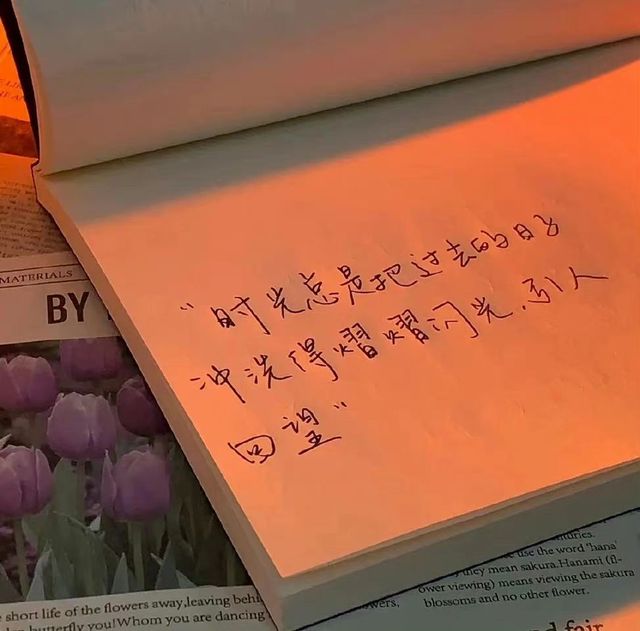 MATERIALS
BY
"时光总是把过去的日子
冲洗得熠熠闪光,引人
回望"
short life of the flowers away,leaving behi
butterfly you!Whom you are dancing
wers,
nturies.
use the word "hana"
they mean sakura.Hanami (fl-
ower viewing) means viewing the sakura
blossoms and no other flower.
d fair